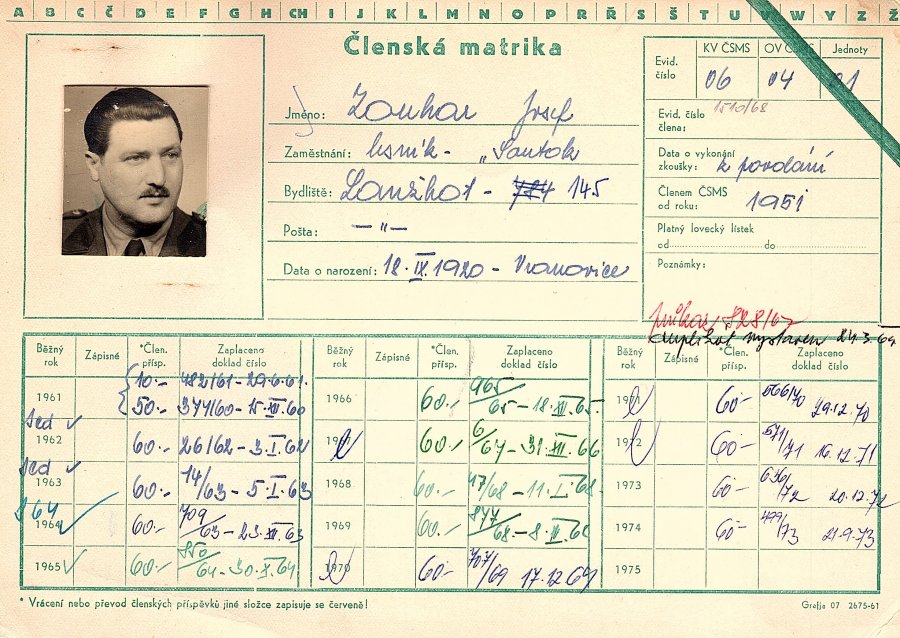 A B C Č D E F G H CH I J K L M N O P R Ř S Š T U V W Y Z Ž
Členská matrika
KV ČSMS OV ČSMS Jednoty
Evid. číslo 06 04 01
Jméno: Zouhar Josef
Evid. číslo člena: 1510/68
Zaměstnání: -
Data o vykonání zkoušky: z povolání
Bydliště: Lanžhot - 784 145
Členem ČSMS od roku: 1951
Pošta: — " —
Platný lovecký lístek
od do
Data o narození: 18. IX. 1920 - Vranovice
Poznámky:
průkaz 828/67
duplikát vystaven 24.3.69
Běžný rok Zápisné *Člen. přísp. Zaplaceno doklad číslo Běžný rok Zápisné *Člen. přísp. Zaplaceno doklad číslo Běžný rok Zápisné *Člen. přísp. Zaplaceno doklad číslo
1961 10.- 482/61 - 29.6.61. 1966 60.- 965/65 - 18.XII.65. 1971 60- 566/70 29.12.70
50.- 377/60 - 15.XII.60
1962 60.- 26/62 - 3.I.62 60.- 6/67 - 31.XII.66 1972 60- 571/71 16.12.71
1963 60.- 14/63 - 5.I.63 1968 60.- 17/68 - 11.I.68. 1973 60- 636/72 20.12.72
864
1964 60.- 709/63 - 23.XII.63 1969 60.- 877/68 - 8. 1974 60- 499/73 21.9.73
1965 60.- 850/64 - 30.X.64 1970 60- 707/69 17.12.69 1975
* Vrácení nebo převod členských příspěvků jiné složce zapisuje se červeně!
Grafia 07 2675-61